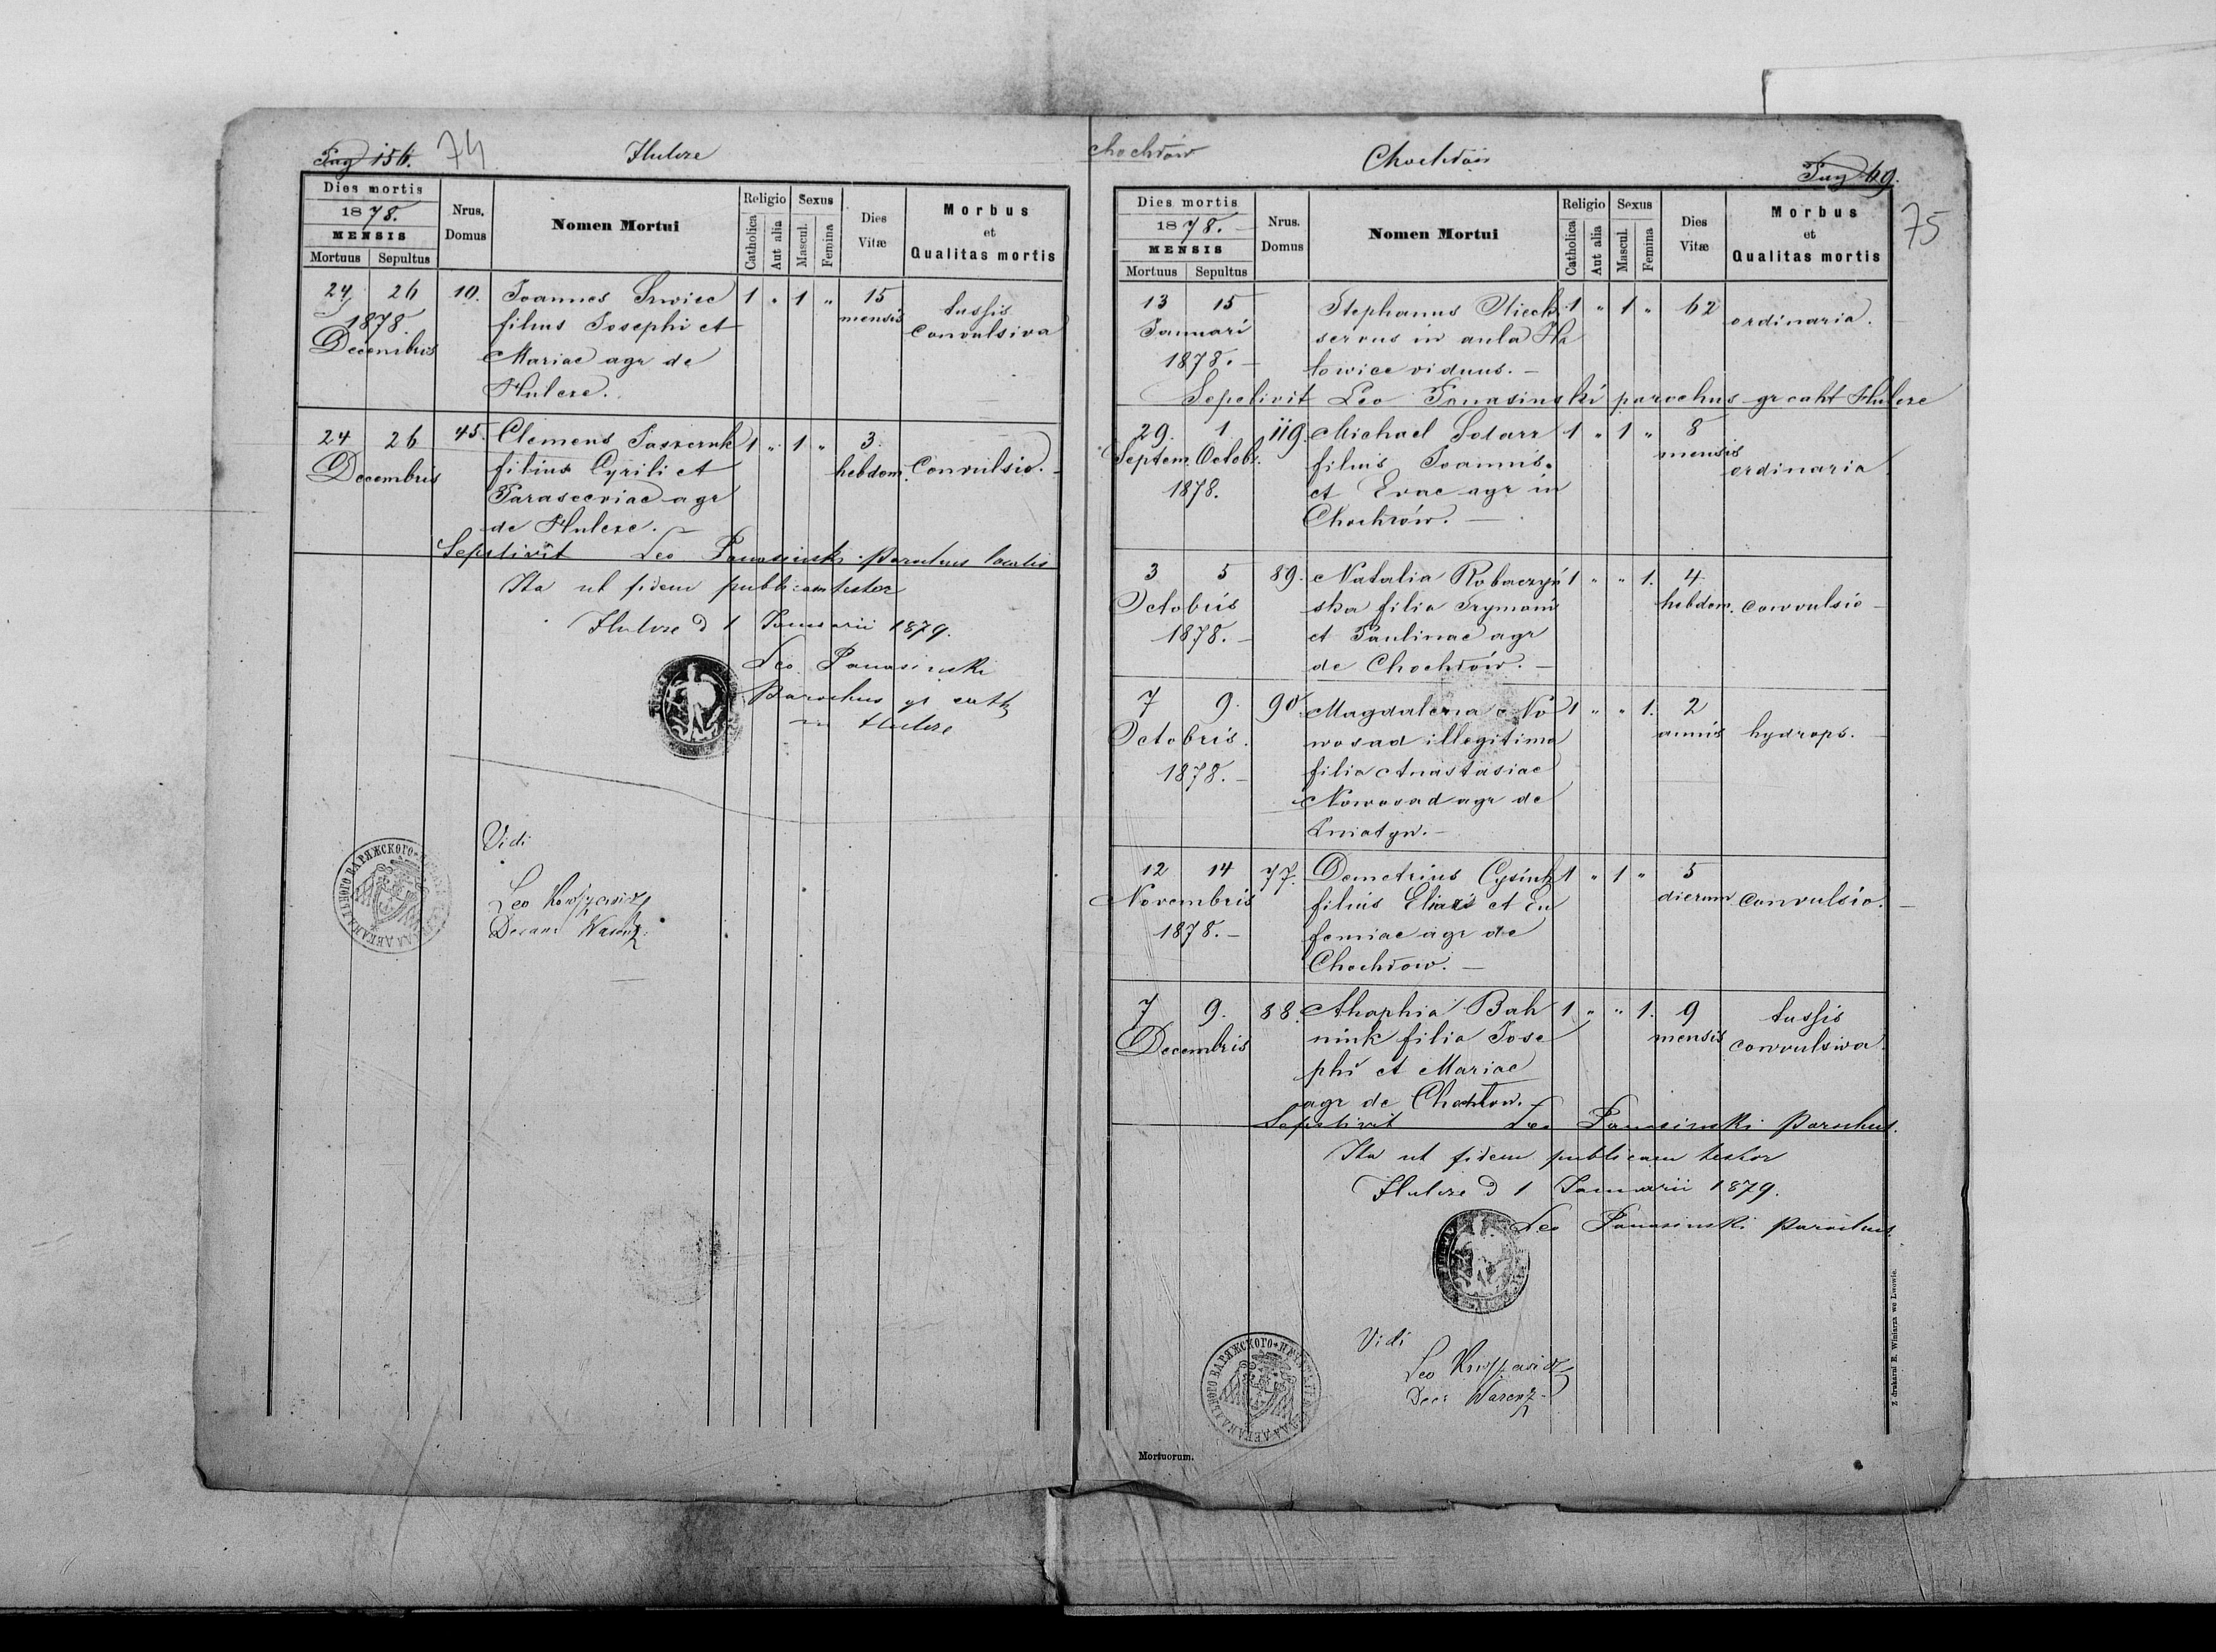 Pag 156. 74 Hulcze
Dies mortis
1878.
MENSIS
Mortuus Sepultus
Nrus. Domus
Nomen Mortui
Religio
Catholica Aut alia
Sexus
Mascul. Femina
Dies Vitæ
Morbus
et
Qualitas mortis
24 26 10. Joannes 1 " 1 " 15 tussis
1878 filius Josephi et mensis convulsiva
Decembris Mariae agr de
Hulcze.
24 26 45. Clemens 1 " 1 " 3
Decembris filius Cyrili et hebdom. Convulsio.
Parasceviae agr
de Hulcze.
Sepelivit Leo Panasinski parochus localis
Ita ut fidem publicam testor
Hulcze d 1 Januarii 1879.
Leo Panasinski
Parochus gr cath
in Hulcze
Vidi
Leo
Decan
chochłów Chochłów Pag 69.
75
Dies mortis
1878.
MENSIS
Mortuus Sepultus
Nrus. Domus
Nomen Mortui
Religio
Catholica Aut alia
Sexus
Mascul. Femina
Dies Vitæ
Morbus
et
Qualitas mortis
13 15 Stephanus 1 " 1 " 62 ordinaria.
Januari servus in aula Ha
1878. łowice viduus.
Sepelivit Leo Panasinski parochus gr caht Hulcze
29. 1. 119. Michael 1 " 1 " 8
Septem. Octobr. filius Joannis mensis ordinaria
1878. et Evae agr in
Chochłów.
3 5 89. Natalia Robaczyń 1 " " 1. 4
Octobris ska filia Szymoni hebdom. convulsio
1878. et Paulinae agr
de Chochłów.
7 9. 90 Magdalena No 1 " " 1. 2
Octobris. wosad illegitima annis hydrops.
1878. filia Anastasiae
Nowosad agr de
Żniatyn.
12 14 77. Demetrius 1 " 1 " 5
Novembris filius Eliae et Eu dierum convulsio.
1878. femiae agr de
Chochłow.
7 9. 88. Ahaphia Bah 1 " " 1. 9 tussis
Decembris niuk filia Jose mensis convulsiva.
phi et Mariae
agr de Chochłow.
Sepelivit Leo Panasinski Parochus.
Ita ut fidem publicam testor
Hulcze d 1 Januarii 1879.
Leo Panasinski parochus.
Vidi
Leo
Warenż
Mortuorum.
Z drukarni E. Winiarza we Lwowie.